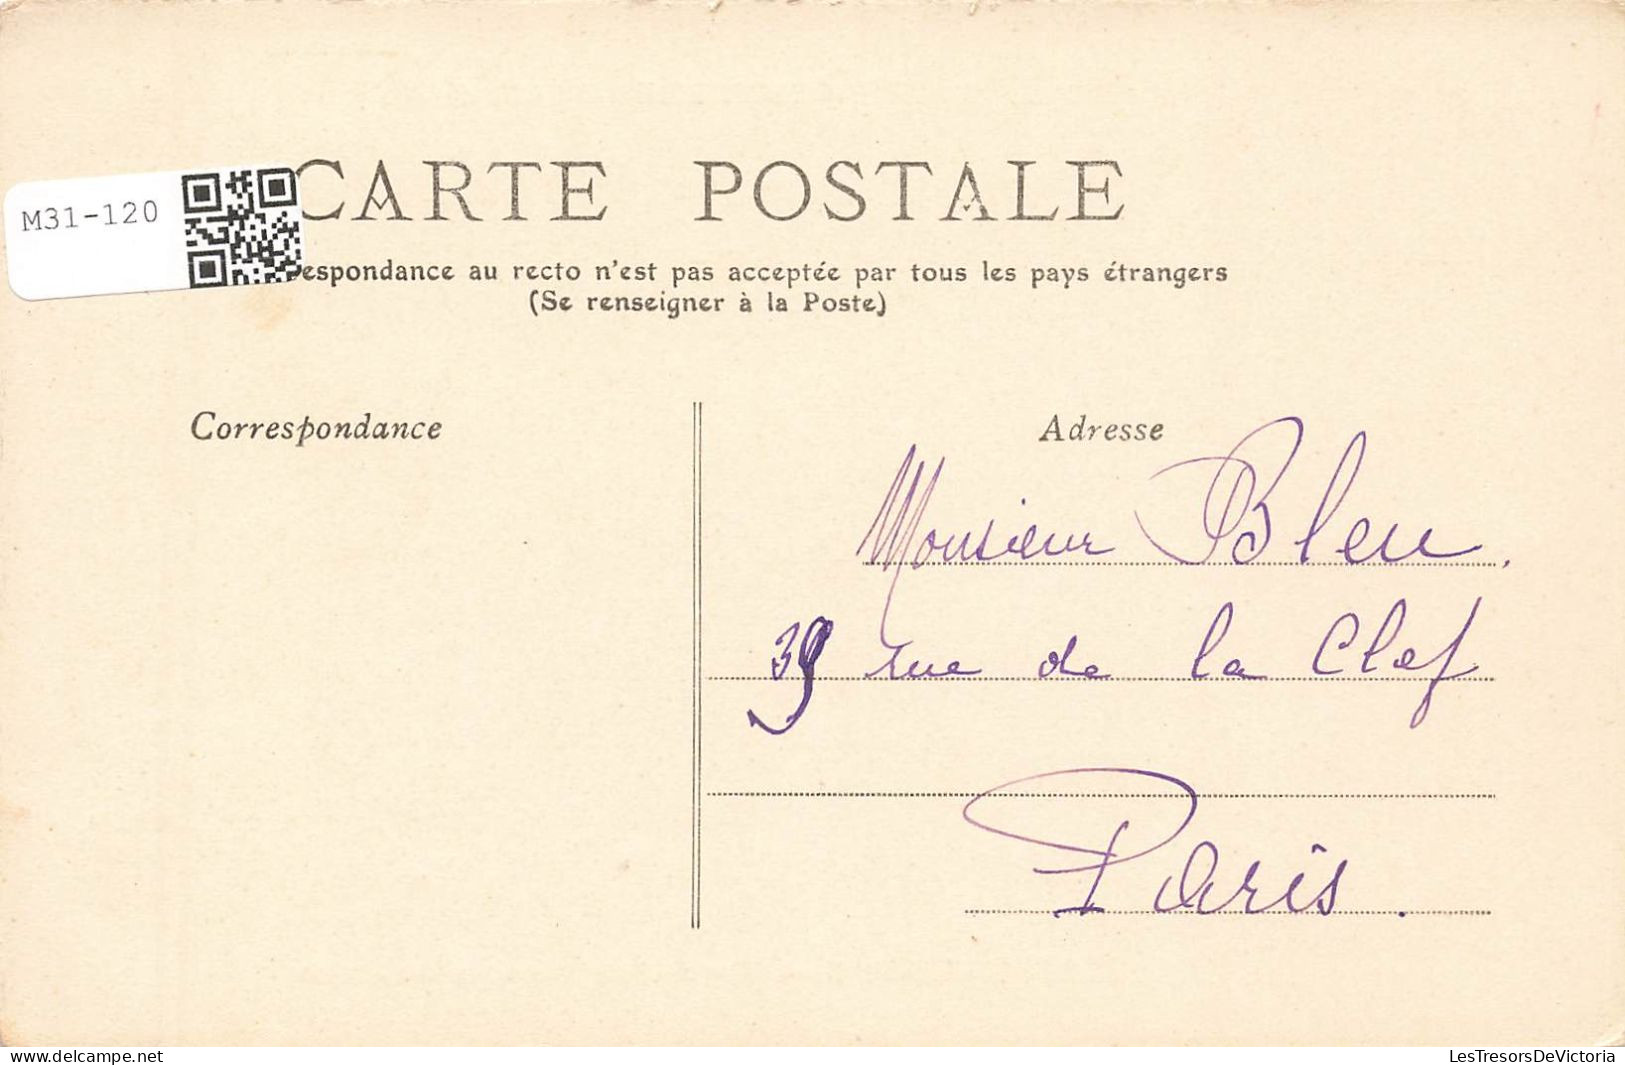 CARTE POSTALE
M31-120
espondance au recto n'est pas acceptée par tous les pays étrangers
(Se renseigner à la Poste)
Correspondance
Adresse
Monsieur Bleu.
39 rue de la Clef
Paris.
www.delcampe.net
LesTresorsDeVictoria